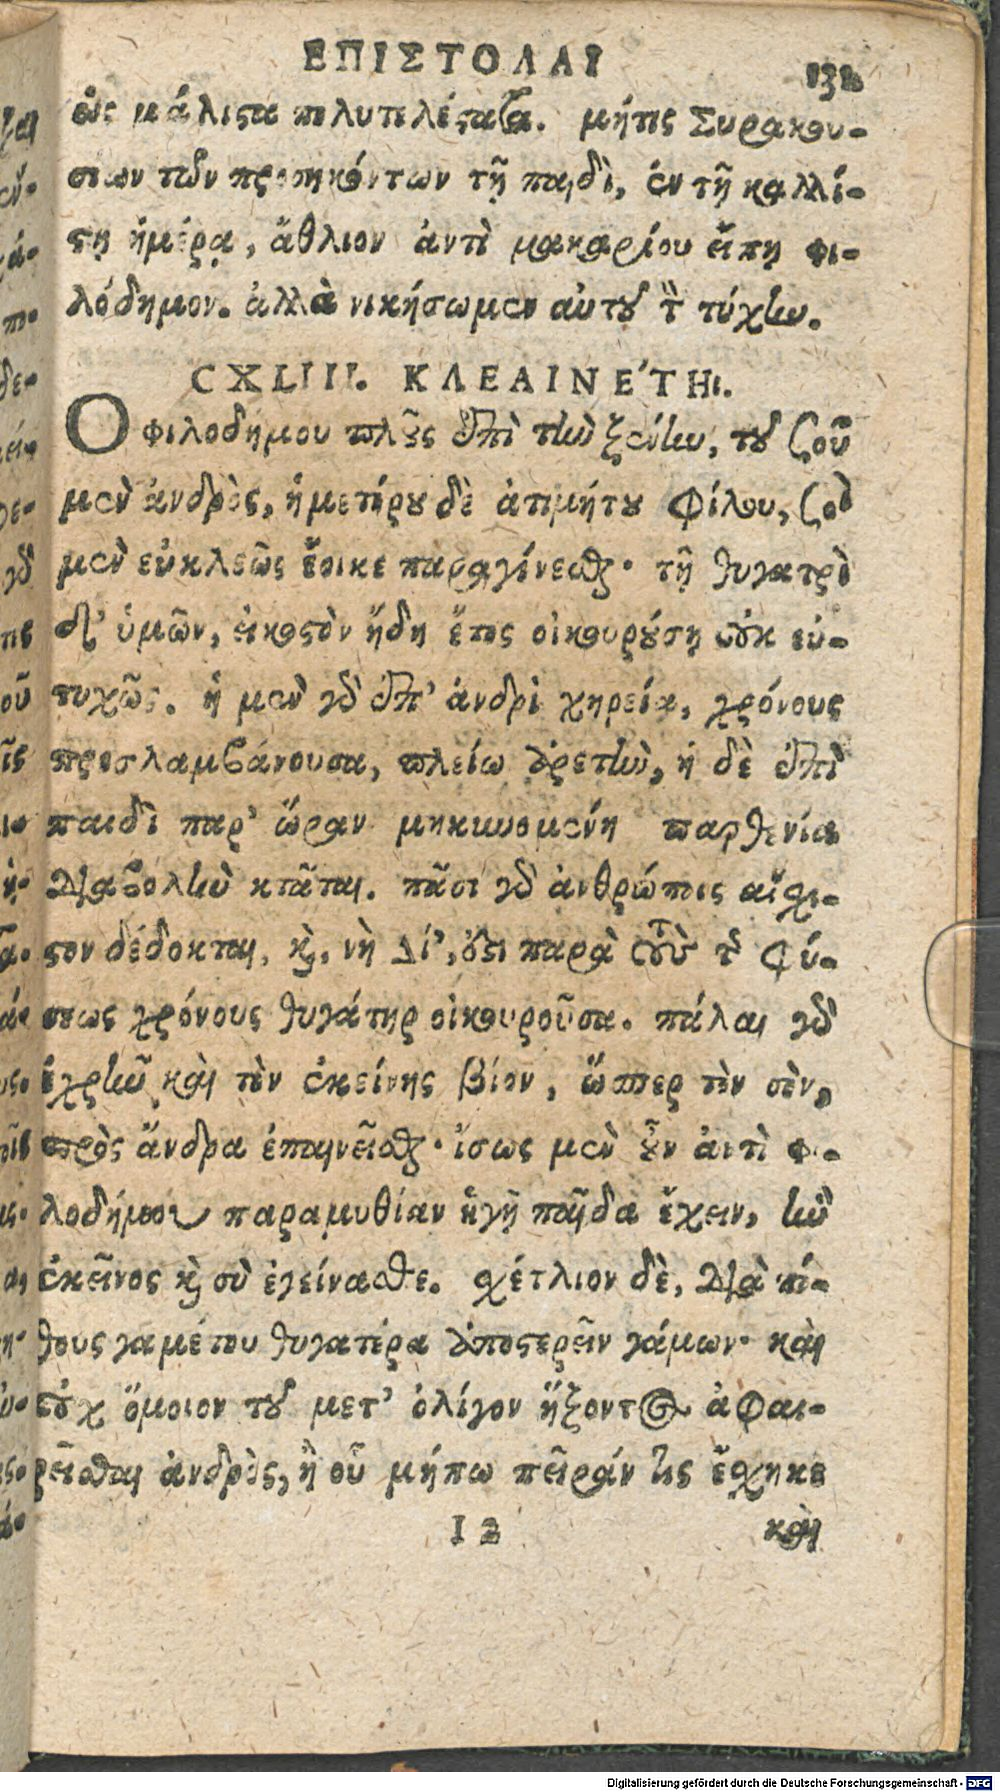 ΕΠΙΣΤΟΛΑΙ
ὡς μάλιστα πολυτελέστατα. μήτις Συρακου-
σίων τῶν προσηκόντων τῇ παιδὶ, ἐν τῇ καλλί-
στῃ ἡμέρᾳ, ἄθλιον ἀντὶ μακαρίου εἴπῃ φι-
λόδημον. ἀλλὰ νικήσωμεν αὐτοῦ τὴν τύχην.
CXLIII. ΚΛΕΑΙΝΕΤΗΙ.
Ο φιλοδήμου πλοῦς ἐπὶ τὴν ξένην, τοῦ σοῦ
μὲν ἀνδρὸς, ἡμετέρου δὲ ἀτιμήτου φίλου, σοὶ
μὲν εὐκλεῶς ἔοικε παραγίνεσθαι· τῇ θυγατρὶ
δ' ὑμῶν, εἰκοστὸν ἤδη ἔτος οἰκουρούσῃ οὐκ εὐ-
τυχῶς. ἡ μὲν γὰρ ἐπ' ἀνδρὶ χηρεία, χρόνους
προσλαμβάνουσα, πλείω ἀρετὴν, ἡ δὲ ἐπὶ
παιδὶ παρ' ὥραν μηκυνομένη παρθενία
διαβολὴν κτᾶται. πᾶσι γὰρ ἀνθρώποις αἴσχι-
στον δέδοκται, καὶ, νὴ Δί', ἔστι παρὰ τοὺς τῆς φύ-
σεως χρόνους θυγάτηρ οἰκουροῦσα. πάλαι γὰρ
ἐχρῆν καὶ τὸν ἐκείνης βίον, ὥσπερ τὸν σὸν,
πρὸς ἄνδρα ἐπαινεῖσθαι· ἴσως μὲν οὖν ἀντὶ φι-
λοδήμου παραμυθίαν ἡγῇ παῖδα ἔχειν, ἣν
ἐκεῖνος καὶ σὺ ἐγείνασθε. σχέτλιον δὲ, διὰ πό-
θους γαμέτου θυγατέρα ἀποστερεῖν γάμων· καὶ
οὐχ ὅμοιον τοῦ μετ' ὀλίγον ἥξοντος ἀφαι-
ρεῖσθαι ἀνδρὸς, ἢ οὗ μήπω πεῖράν τις ἔσχηκε
I 2 καὶ
Digitalisierung gefördert durch die Deutsche Forschungsgemeinschaft - DFG